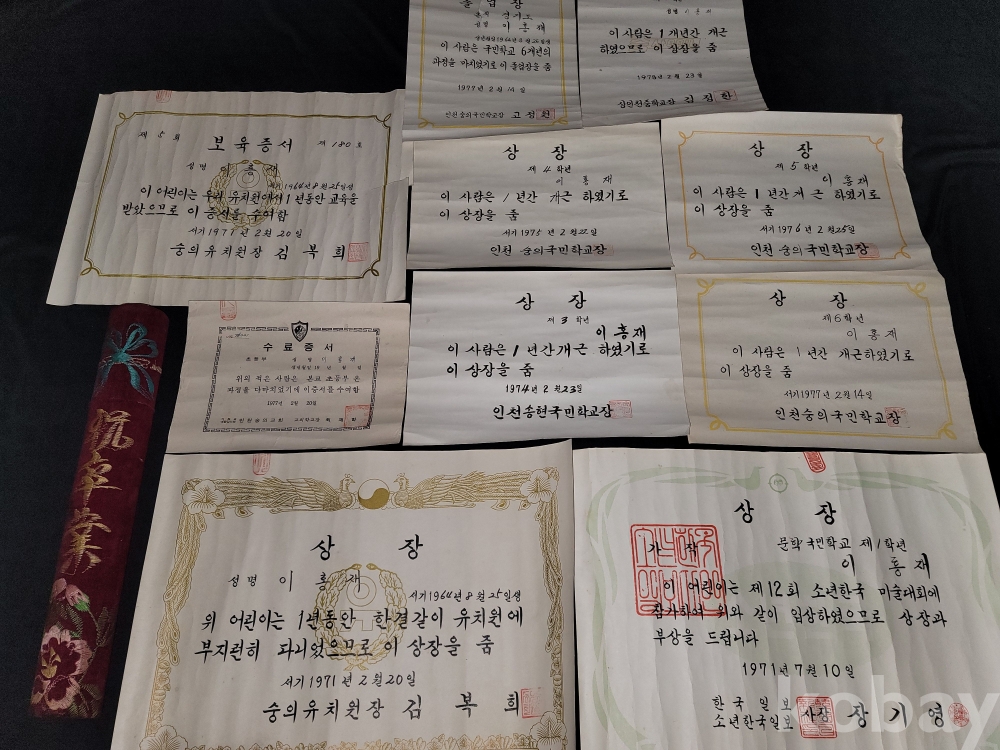 졸업장
본적 경기도
성명 이흥재
생년월일 1964년 8월 25일생
이 사람은 국민학교 6개년의
과정을 마치었기로 이 졸업장을 줌
1977년 2월 14일
인천숭의국민학교장 고정원
성명 이흥재
이 사람은 1개년간 개근
하였으므로 이 상장을 줌
1978년 2월 23일
제 5 회
보육증서
제 180 호
성명 이흥재
서기 1964년 8월 25일생
이 어린이는 우리 유치원에서 1년동안 교육을
받았으므로 이 증서를 수여함
서기 1971년 2월 20일
숭의유치원장 김복희
상장
제 4 학년
이흥재
이 사람은 1년간 개근 하였기로
이 상장을 줌
서기 1975년 2월 22일
인천 숭의국민학교장
상장
제 5 학년
이흥재
이 사람은 1년간 개근 하였기로
이 상장을 줌
서기 1976년 2월 25일
인천 숭의국민학교장
수료증서
위의 적은 사람은 본교 초등부 온
과정을 다 마치었기에 이 증서를 수여함
1977년 2월 20일
상장
제 3 학년
이흥재
이 사람은 1년간 개근 하였기로
이 상장을 줌
1974년 2월 23일
인천송현국민학교장
상장
제 6 학년
이흥재
이 사람은 1년간 개근하였기로
이 상장을 줌
서기 1977년 2월 14일
인천숭의국민학교장
祝卒業
상장
성명 이흥재
서기 1964년 8월 25일생
위 어린이는 1년동안 한결같이 유치원에
부지런히 다니었으므로 이 상장을 줌
서기 1971년 2월 20일
숭의유치원장 김복희
상장
가작
문학국민학교 제1학년
이흥재
이 어린이는 제12회 소년한국 미술대회에
참가하여 위와 같이 입상하였으므로 상장과
부상을 드립니다
1971년 7월 10일
한국일보
소년한국일보 사장 장기영
kobay